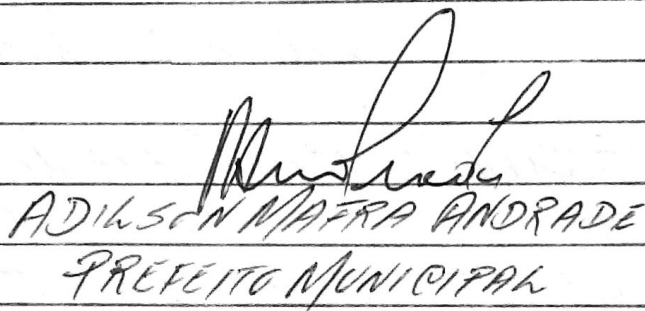 ADILSON MAFRA ANDRADE
PREFEITO MUNICIPAL